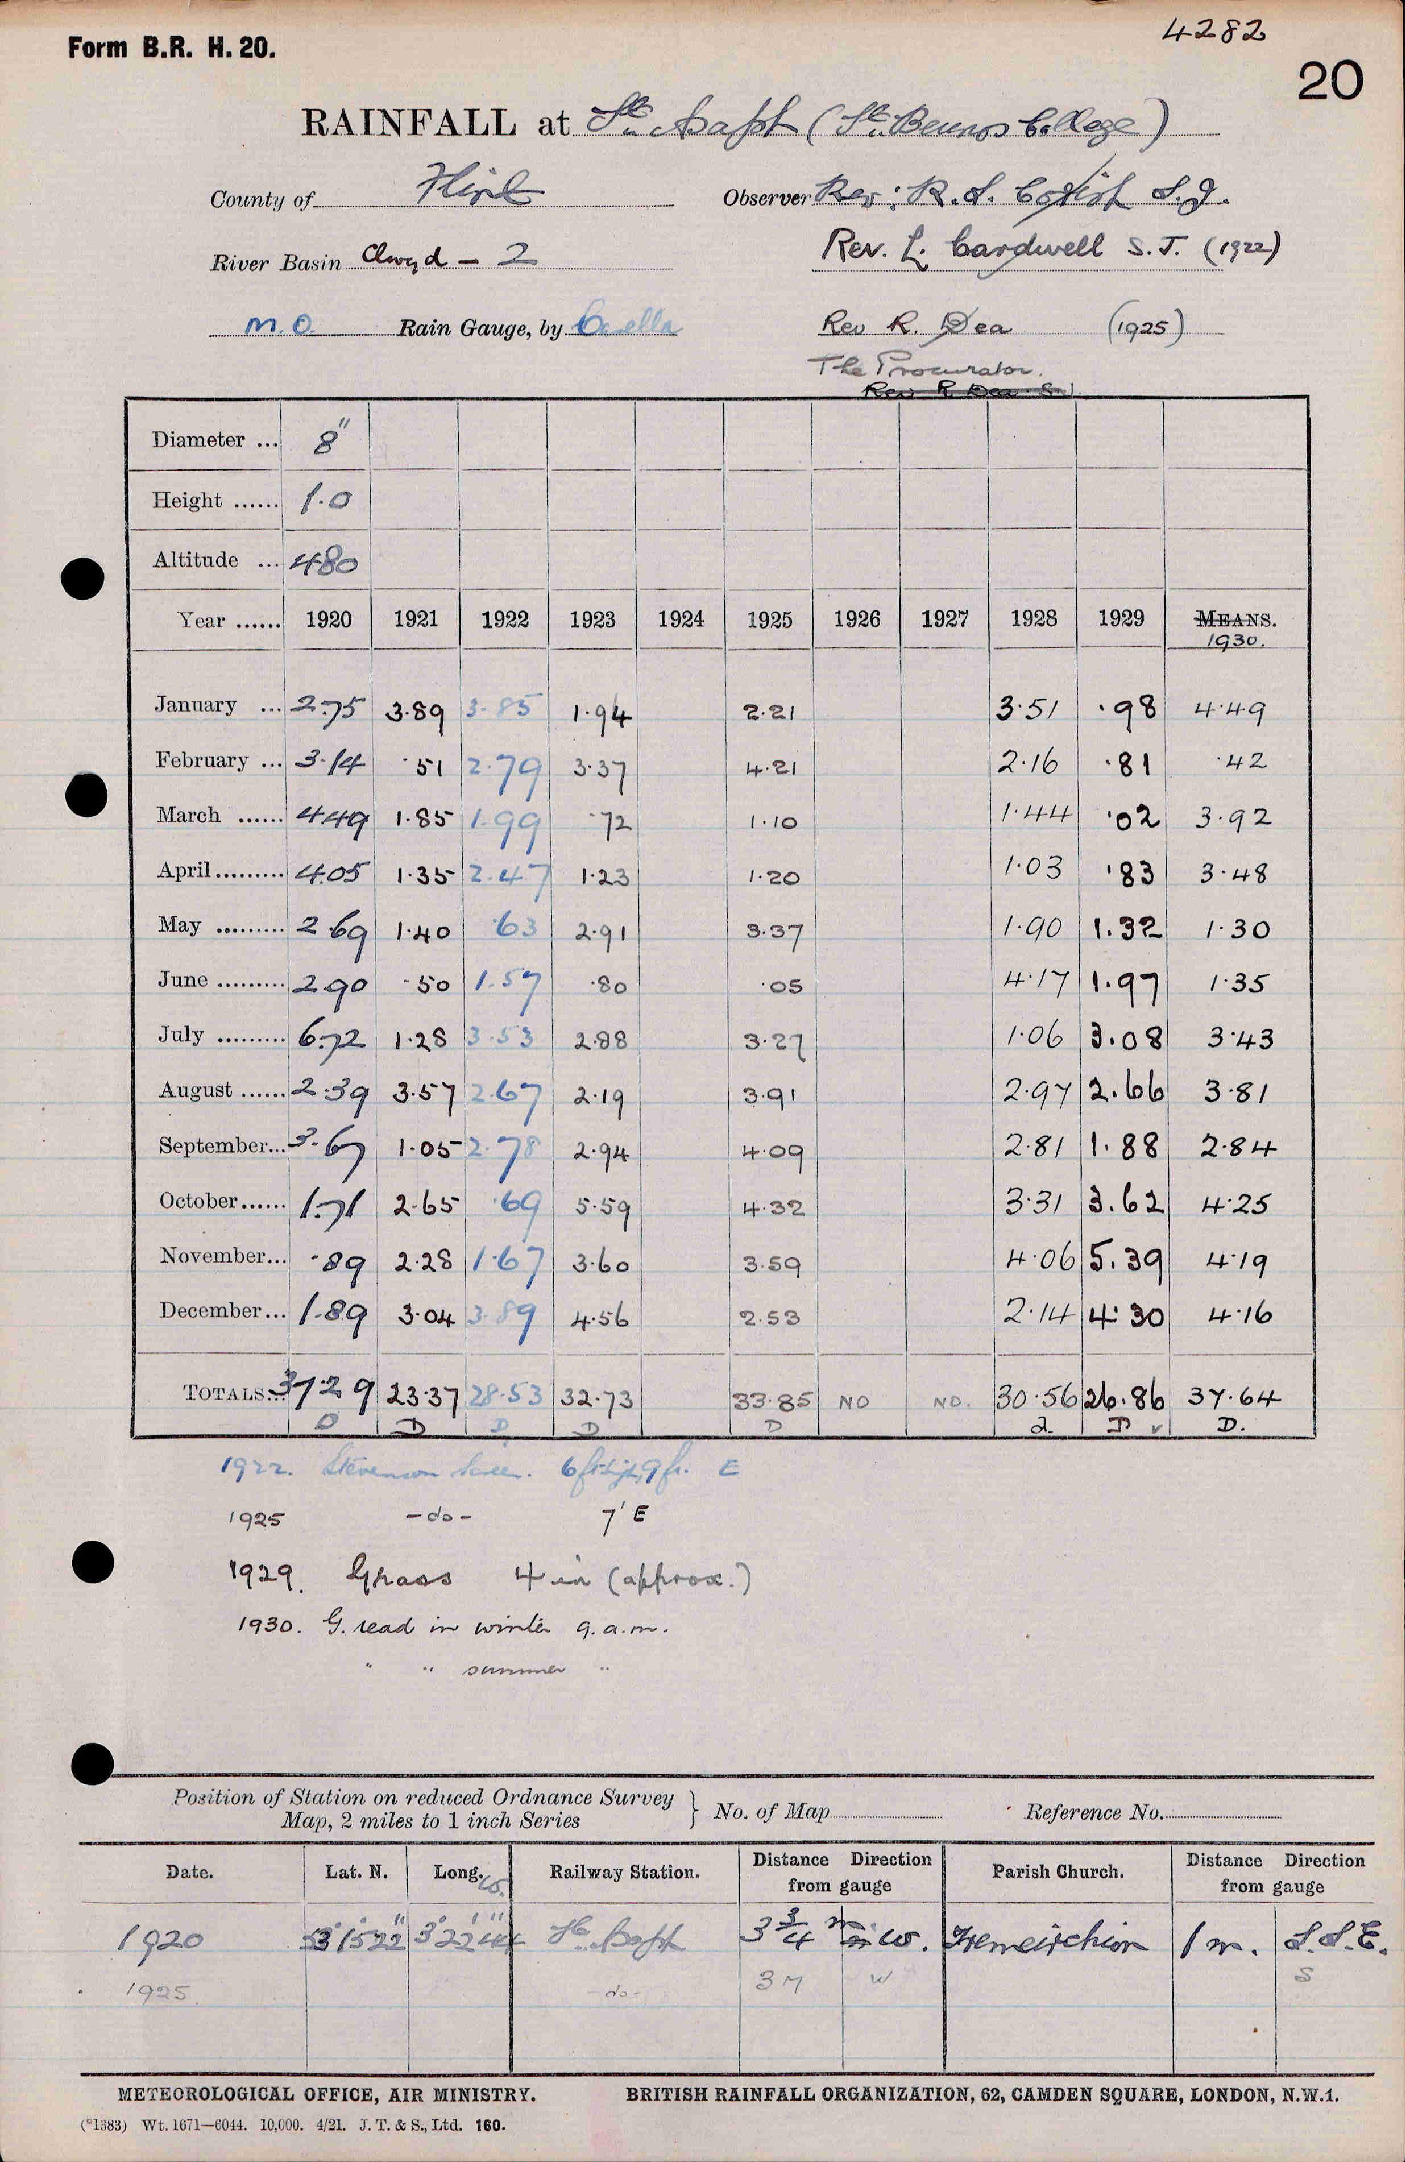 4282
Form B.R. H. 20.
20
RAINFALL at St. Asaph (St. Beunos College)
County of Flint Observer Rev: R.S. S.J.
River Basin Clwyd - 2 Rev. L. Cardwell S.J. (1922)
M.O. Rain Gauge, by Casella Rev R. Dea (1925)
The Procurator.
Rev R Dea S.J
Diameter ... 8"
Height ...... 1.0
Altitude ... 480
Year ...... 1920 1921 1922 1923 1924 1925 1926 1927 1928 1929 MEANS.
1930.
January ... 2.75 3.89 3.85 1.94 2.21 3.51 .98 4.49
February ... 3.14 .51 2.79 3.37 4.21 2.16 .81 .42
March ...... 4.49 1.85 1.99 .72 1.10 1.44 .02 3.92
April ......... 4.05 1.35 2.47 1.23 1.20 1.03 .83 3.48
May ......... 2.69 1.40 .63 2.91 3.37 1.90 1.32 1.30
June ......... 2.90 .50 1.57 .80 .05 4.17 1.97 1.35
July ......... 6.72 1.28 3.53 2.88 3.27 1.06 3.08 3.43
August ...... 2.39 3.57 2.67 2.19 3.91 2.97 2.66 3.81
September... 3.67 1.05 2.78 2.94 4.09 2.81 1.88 2.84
October...... 1.71 2.65 .69 5.59 4.32 3.31 3.62 4.25
November... .89 2.28 1.67 3.60 3.59 4.06 5.39 4.19
December... 1.89 3.04 3.89 4.56 2.53 2.14 4.30 4.16
TOTALS... 37.29 23.37 28.53 32.73 33.85 NO NO. 30.56 26.86 37.64
D D D D D 2 D v D.
1922. Stevenson Screen. 6ft high, 9ft. E
1925 -do- 7' E
1929. Grass 4 in (approx.)
1930. G. read in winter 9. a.m.
" " summer "
Position of Station on reduced Ordnance Survey
Map, 2 miles to 1 inch Series } No. of Map Reference No.
Date. Lat. N. Long. W. Railway Station. Distance Direction from gauge Parish Church. Distance Direction from gauge
1920 53° 15' 22" 3° 22' 44" St. Asaph 3 3/4 m W. Tremeirchion 1 m. S.S.E.
1925 -do- 3 M W S
METEOROLOGICAL OFFICE, AIR MINISTRY. BRITISH RAINFALL ORGANIZATION, 62, CAMDEN SQUARE, LONDON, N.W.1.
(*1383) Wt. 1671—6044. 10,000. 4/21. J. T. & S., Ltd. 160.